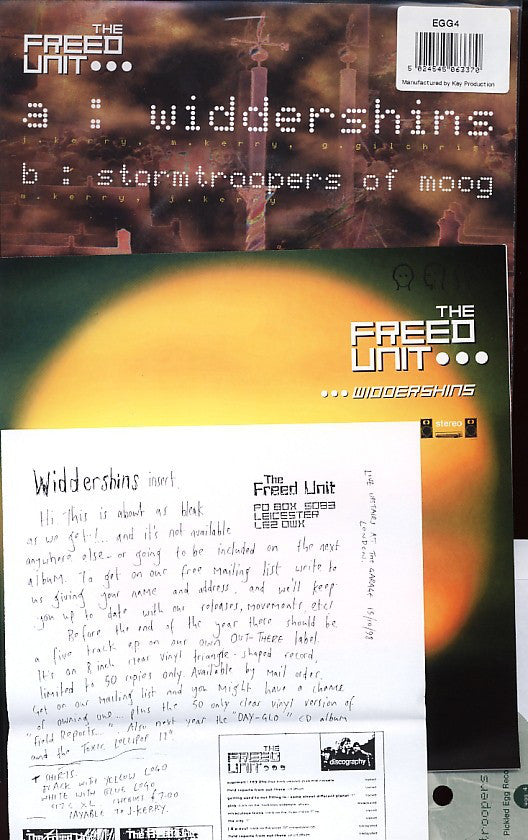 THE
FREED
UNIT...
EGG4
5 024545 063370
Manufactured by Key Production
a : widdershins
j.kerry, m.kerry, g.gilchrist
b : stormtroopers of moog
m.kerry, j.kerry
THE
FREED
UNIT...
...WIDDERSHINS
stereo
Widdershins insert.
The
Freed Unit
PO BOX 5093
LEICESTER
LE2 0WX
LIVE UPSTAIRS AT THE GARAGE 15/10/98
LONDON
Hi This is about as bleak
as we get-!... and it's not available
anywhere else - or going to be included on the next
album. To get on our free mailing list write to
us giving your name and address, and we'll keep
you up to date with our releases, movements, etc!
Before the end of the year there should be
a five track ep on our own OUT-THERE label.
It's an 8 inch clear vinyl triangle-shaped record,
limited to 50 copies only. Available by mail order.
Get on our mailing list and you might have a chance
of owning one... plus the 50 only clear vinyl version of
"Field Reports..." Also next year the "DAY-GLO" CD album
and the Toxic Lollipop 12"
T SHIRTS.
BLACK WITH YELLOW LOGO
WHITE WITH BLUE LOGO
XL
PAYABLE TO J.KERRY.
THE
FREED
UNIT...
discography
troopers
ckled Egg Reco